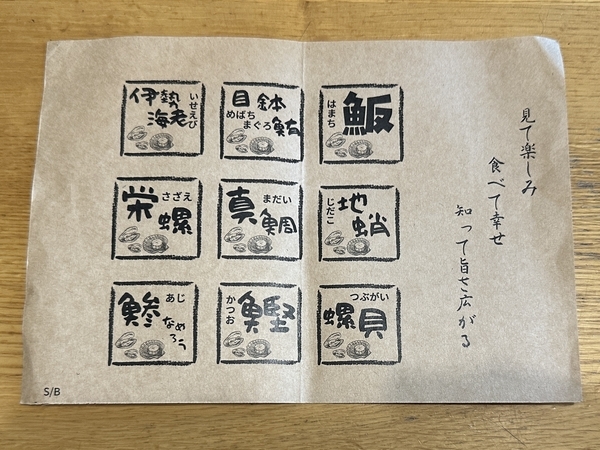 見て楽しみ
食べて幸せ
知って旨さ広がる
伊勢
海老
いせえび
目鉢
めばち
まぐろ
鮪
はまち
魬
栄螺
さざえ
真鯛
まだい
じだこ
地蛸
鯵
あじ
なめろう
かつお
鰹
つぶがい
螺貝
S/B